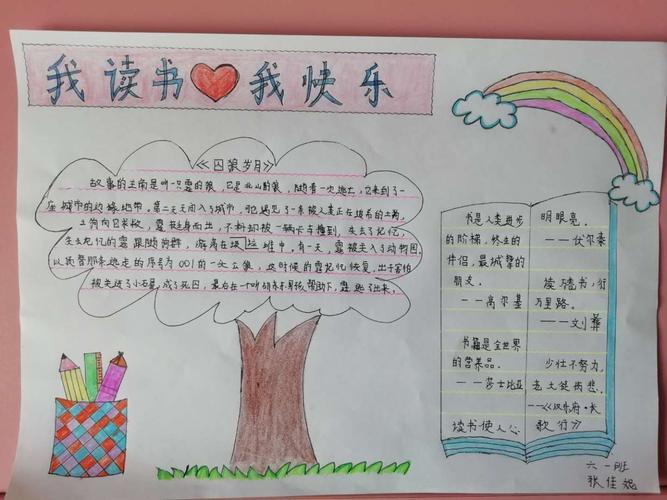 我读书我快乐
《囚狼岁月》
故事的主角是叫一只霞的狼，它是北山的狼，随着一次逃亡，它来到了一
座城市的边缘地带。第二天天闯入了城市，
土狗向它求救，霞挺身而出，不料却被一辆卡车撞到，失去了记忆，
失去记忆的霞跟随狗群，游荡在垃圾堆中。有一天，霞被关入了动物园，
以代替那条逃走的序号为001的一头公狼，这时候的霞记忆恢复，出于害怕
被关进了小石屋，成了死囚，最后在一个叫胡来的男孩帮助下，霞逃了出来。
书是人类进步
的阶梯，终生的
伴侣，最诚挚的
朋友。
——高尔基
书籍是全世界
的营养品。
——莎士比亚
读书使人心
明眼亮。
——伏尔泰
读万卷书，行
万里路。
——刘彝
少壮不努力，
老大徒伤悲。
——《汉乐府·长
歌行》
六一班
张佳妮